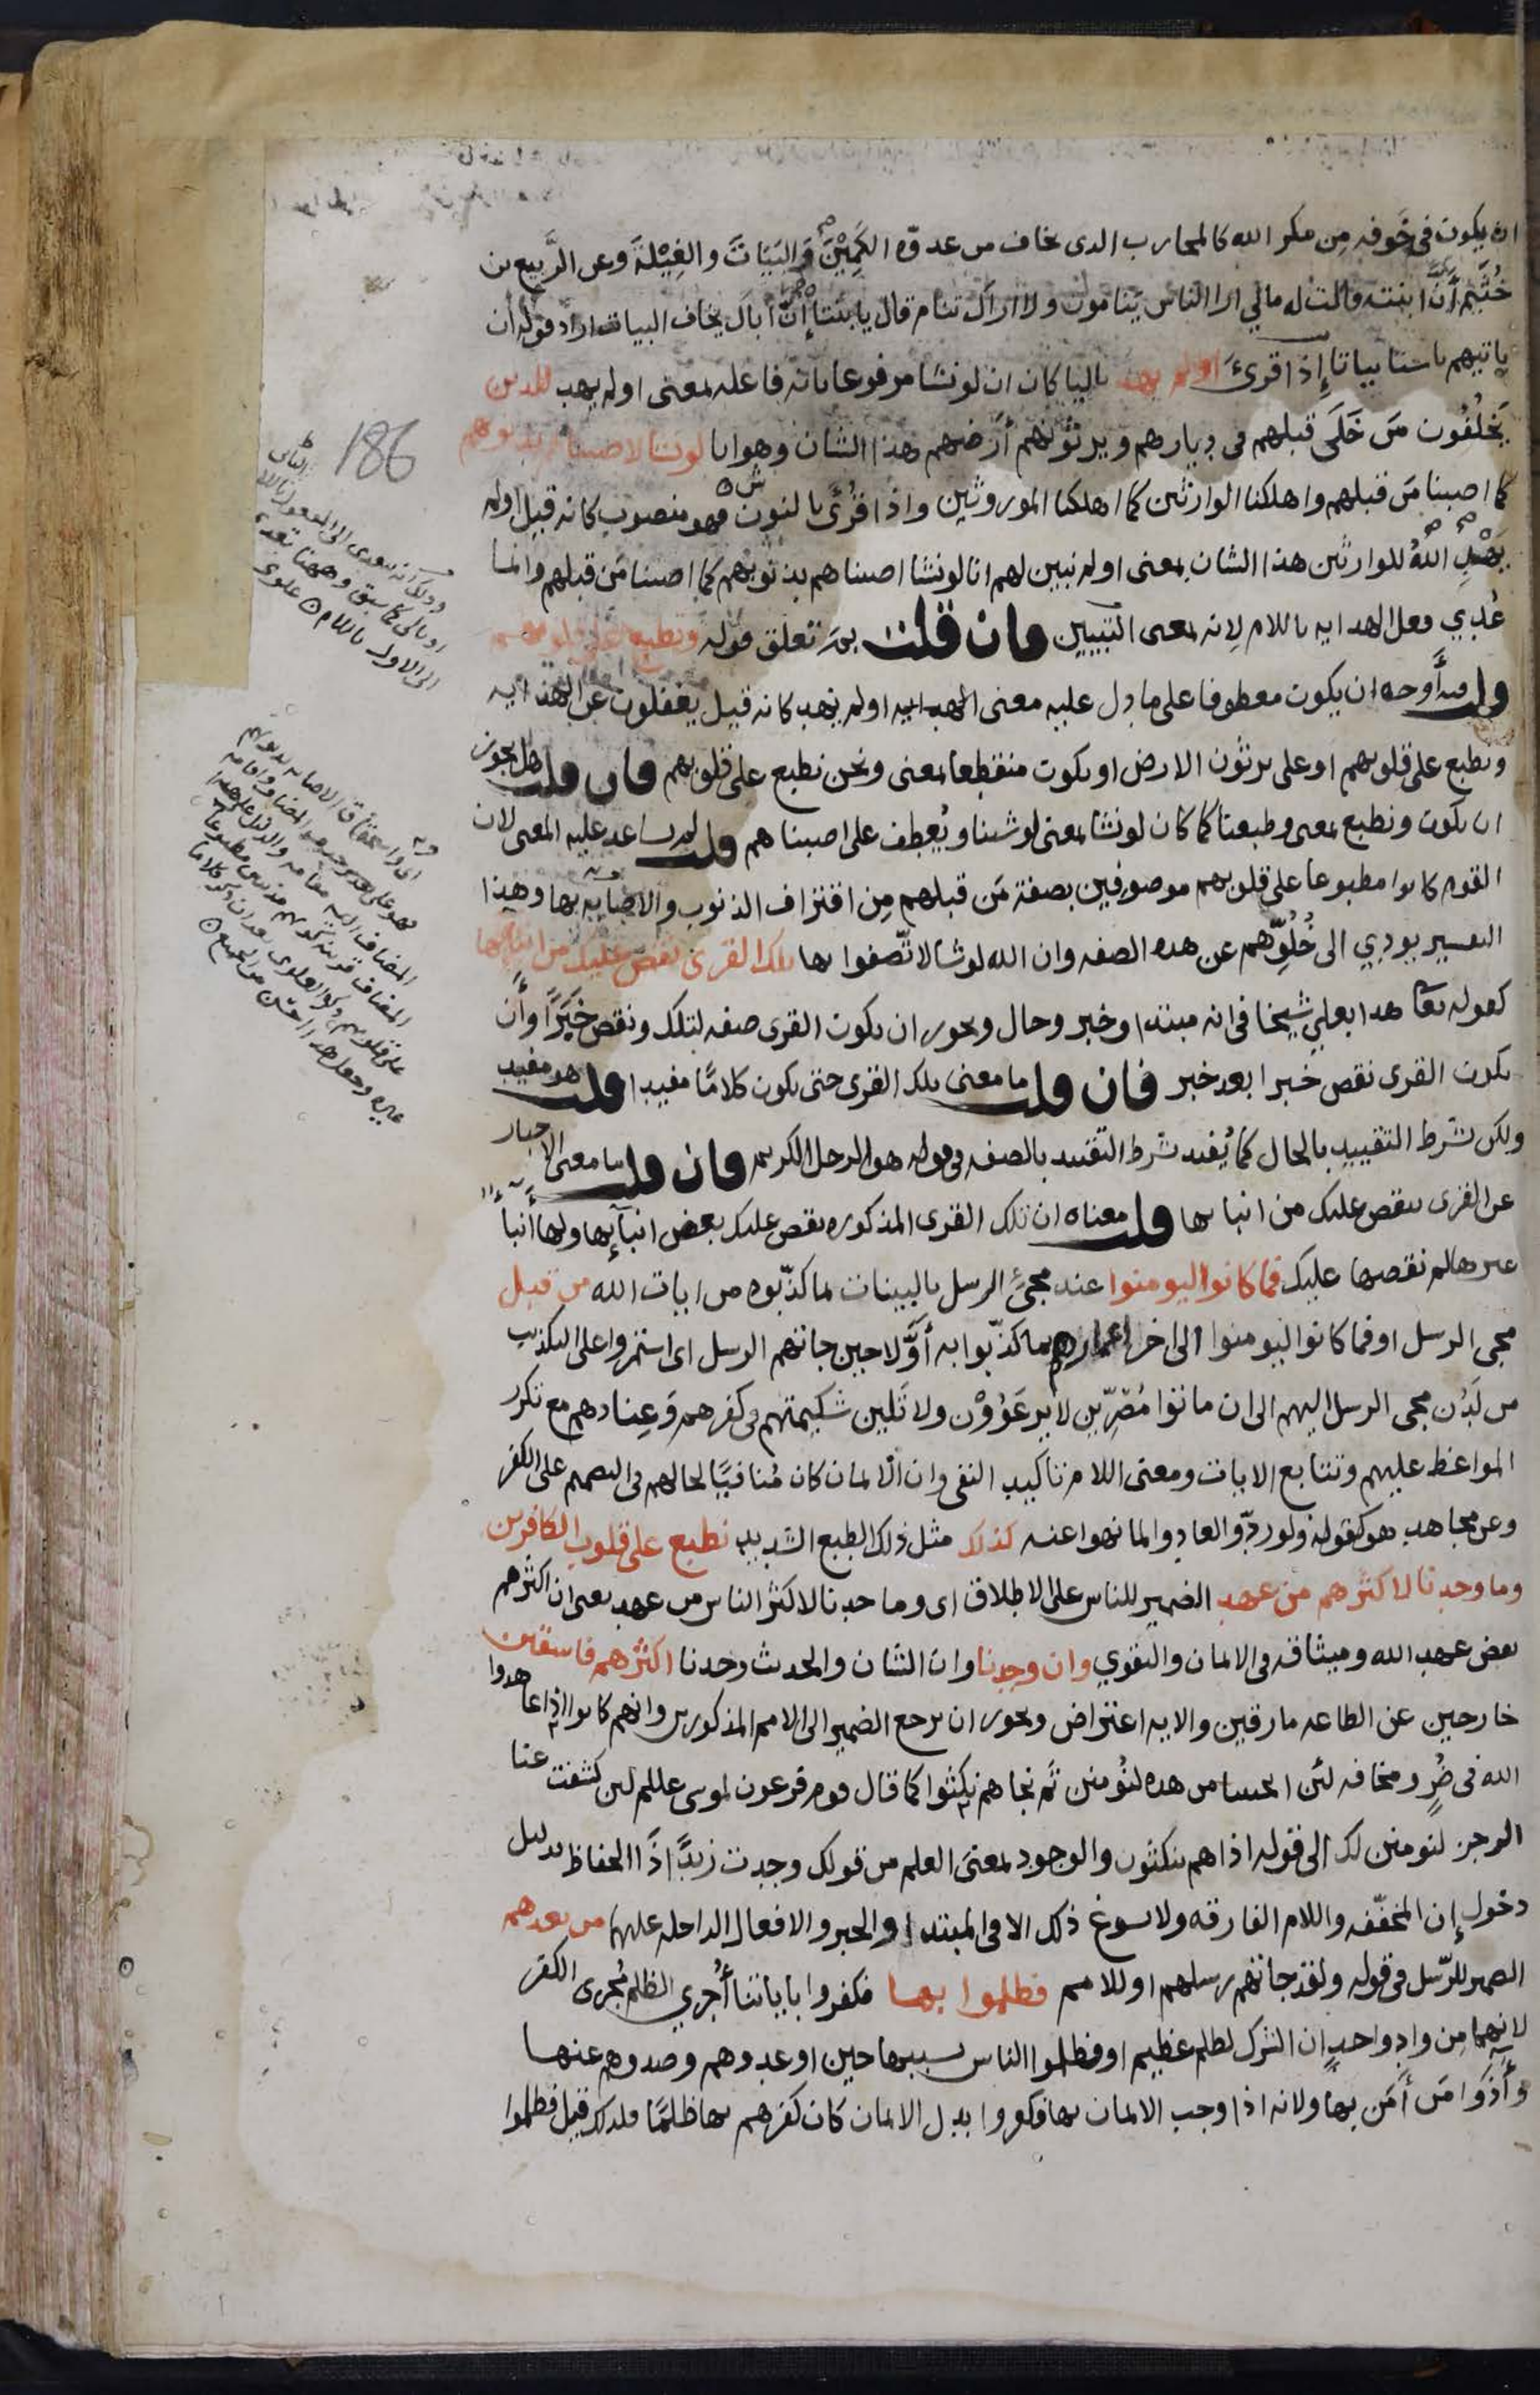 ان يكون فى خَوفه مِن مكر الله كالمحارب الدى يخاف من عدوّه الكَمِيْنَ وَالبَيَاتَ والغِيْلةَ وعن الرَّبيع بن
خُثَيم أنَّ ابنته قالت له مالي ارا الناس يَنامون ولا اراك تنام قال يا بنتا إنَّ أباكِ يخاف البيات اراد قوله أن
ياتيهم باسنا بياتا إذا قرئَ اولم يهد باليا كان ان لو نشا مرفوعا بانه فاعله بمعنى اولم يهد للدين
يَخلُفُون مَن خَلَى قبلهم فى ديارهم ويرثونهم أرضهم هذا الشان وهو انا لو نشا لاصبناهم بدنوبهم
كما اصبنا مَن قبلهم واهلكنا الوارثين كما اهلكنا الموروثين واذا قُرئَ بالنون فهو منصوب كانه قيل اولم
يَهْدِ اللهُ للوارثين هذا الشان بمعنى اولم نبين لهم انا لو نشا اصبناهم بذنوبهم كما اصبنا مَن قبلهم وانما
عُدِي فعل الهدايه باللام لِانه بمعنى التبيين فان قلت بم تعلق قوله ونطبع على قلوبهم
قلت فيه أَوجه ان يكون معطوفا على ما دل عليه معنى الهدايه اولم يهد كانه قيل يغفلون عن الهدايه
ونطبع على قلوبهم او على يرثون الارض او يكون منقطعا بمعنى ونحن نطبع على قلوبهم فان قلت هل يجوز
ان يكون ونطبع بمعنى وطبعنا كما كان لو نشا بمعنى لو شينا ويُعطف على اصبناهم قلت لا يساعد عليه المعنى لان
القوم كانوا مطبوعا على قلوبهم موصوفين بصفة مَن قبلهم مِن اقتراف الذنوب والاصابه بها وهذا
التفسير يودي الى خُلُوِّهم عن هده الصفه وان الله لو شا لاتّصفوا بها تلك القرى نقص عليك من انبائها
كقوله تعا هدا بعلي شيخا فى انه مبتدا وخبر وحال ويجوز ان يكون القرى صفه لتلك ونقص خَبَرًا وأَن
يكون القرى نقص خبرا بعد خبر فان قلت ما معنى تلك القرى حتى يكون كلامًا مفيدا قلت هو مفيد
ولكن بشرط التقييد بالحال كما يُفيد بشرط التقييد بالصفه فى قولك هو الرجل الكريم فان قلت ما معنى الاخبار
عن القرى بنقص عليك من انبائها قلت معناه ان تلك القرى المذكوره نقص عليك بعض انبآئِها ولها أنبآء
غيرها لم نقصها عليك فما كانوا ليومنوا عند مجئِ الرسل بالبينات لما كذّبوه من ايات الله من قبل
مجى الرسل او فما كانوا ليومنوا الى اخر اعمارهم بما كذّبوا به أوَّلا حين جاتهم الرسل اى استمروا على التكذيب
من لَدُن مجى الرسل اليهم الى ان ماتوا مُصِّرِين لا يرعَوُوْن ولا تَلين شكيمتهم فى كفرهم وَعِنادهم مع تكرر
المواعظ عليهم وتتابع الايات ومعنى اللام تاكيد النفى وان الايمان كان مُنافيًا لحالهم فى التصميم على الكفر
وعن مجاهد هو كقوله ولو ردّوا لعادوا لما نهوا عنه كذلك مثل ذلك الطبع الشديد نطبع على قلوب الكافرين
وما وجدنا لاكثرهم من عهد الضمير للناس على الاطلاق اى وما وجدنا لاكثر الناس من عهد يعنى ان اكثرهم
نقض عهد الله وميثاقه فى الايمان والتقوي وان وجدنا وان الشان والحديث وجدنا اكثرهم فاسقين
خارجين عن الطاعه مارقين والايه اعتراض ويجوز ان يرجع الضمير الى الامم المذكورين وانهم كانوا اذا عاهدوا
الله فى ضُرٍ ومخافه لئن انجيتنا من هده لنُومنن ثم نجاهم نكثوا كما قال قوم فرعون لموسى عللم لين كشفت عنا
الرجز لنومنن لك الى قوله اذا هم ينكثون والوجود بمعنى العلم من قولك وجدت زيدًا ذَا الحفاظ بدليل
دخول إن المخفّفه واللام الفارقه ولا يسوغ ذلك الا فى المبتدا والخبر والافعال الداخله عليهما من بعدهم
الضمير للرّسل فى قوله ولقد جاتهم رسلهم او للامم فظلموا بها فكفروا باياتنا أُجرِي الظلم مُجرى الكفر
لانهما مِن وادٍ واحدٍ ان الشرك لظلم عظيم او فظلموا الناس بسببها حين اوعدوهم وصدوهم عنها
وأذَوا مَن أمَن بها ولانه اذا وجب الايمان بها فكفروا بدل الايمان كان كفرهم بها ظلمًا فلدلك قيل فظلموا
186
ودلك انه يعدى الى المفعول الثانى
او بالى كما سبق وههنا تعدى
الى الاول باللام علوى